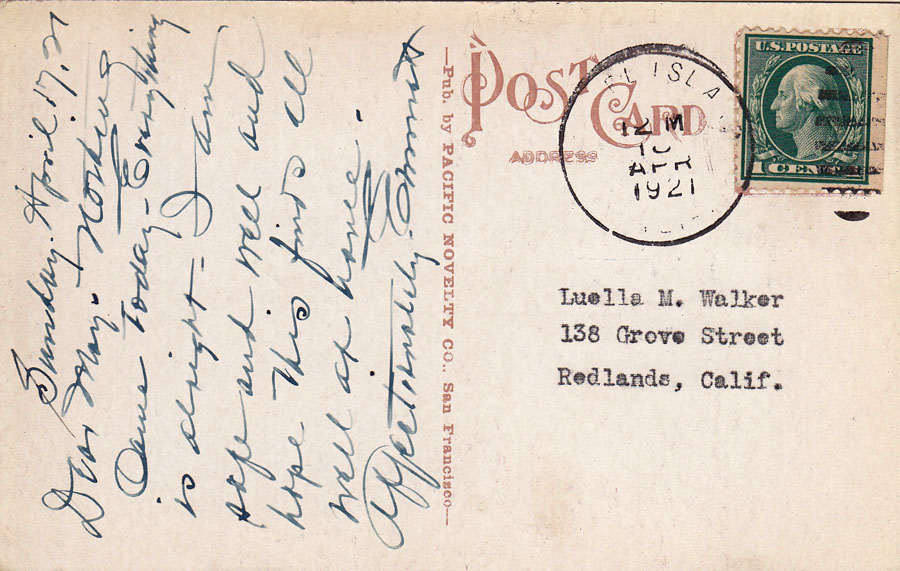 Sunday. April 17, 21
Dear May: Nothing
Came Today - Everything
is alright - I am
safe and well and
hope this finds all
well at home.
Affectionately.
—Pub. by PACIFIC NOVELTY CO., San Francisco—
POST CARD
ADDRESS
ISLA
12 M
APR
1921
U.S. POSTAGE
1 CENT
Luella M. Walker
138 Grove Street
Redlands, Calif.